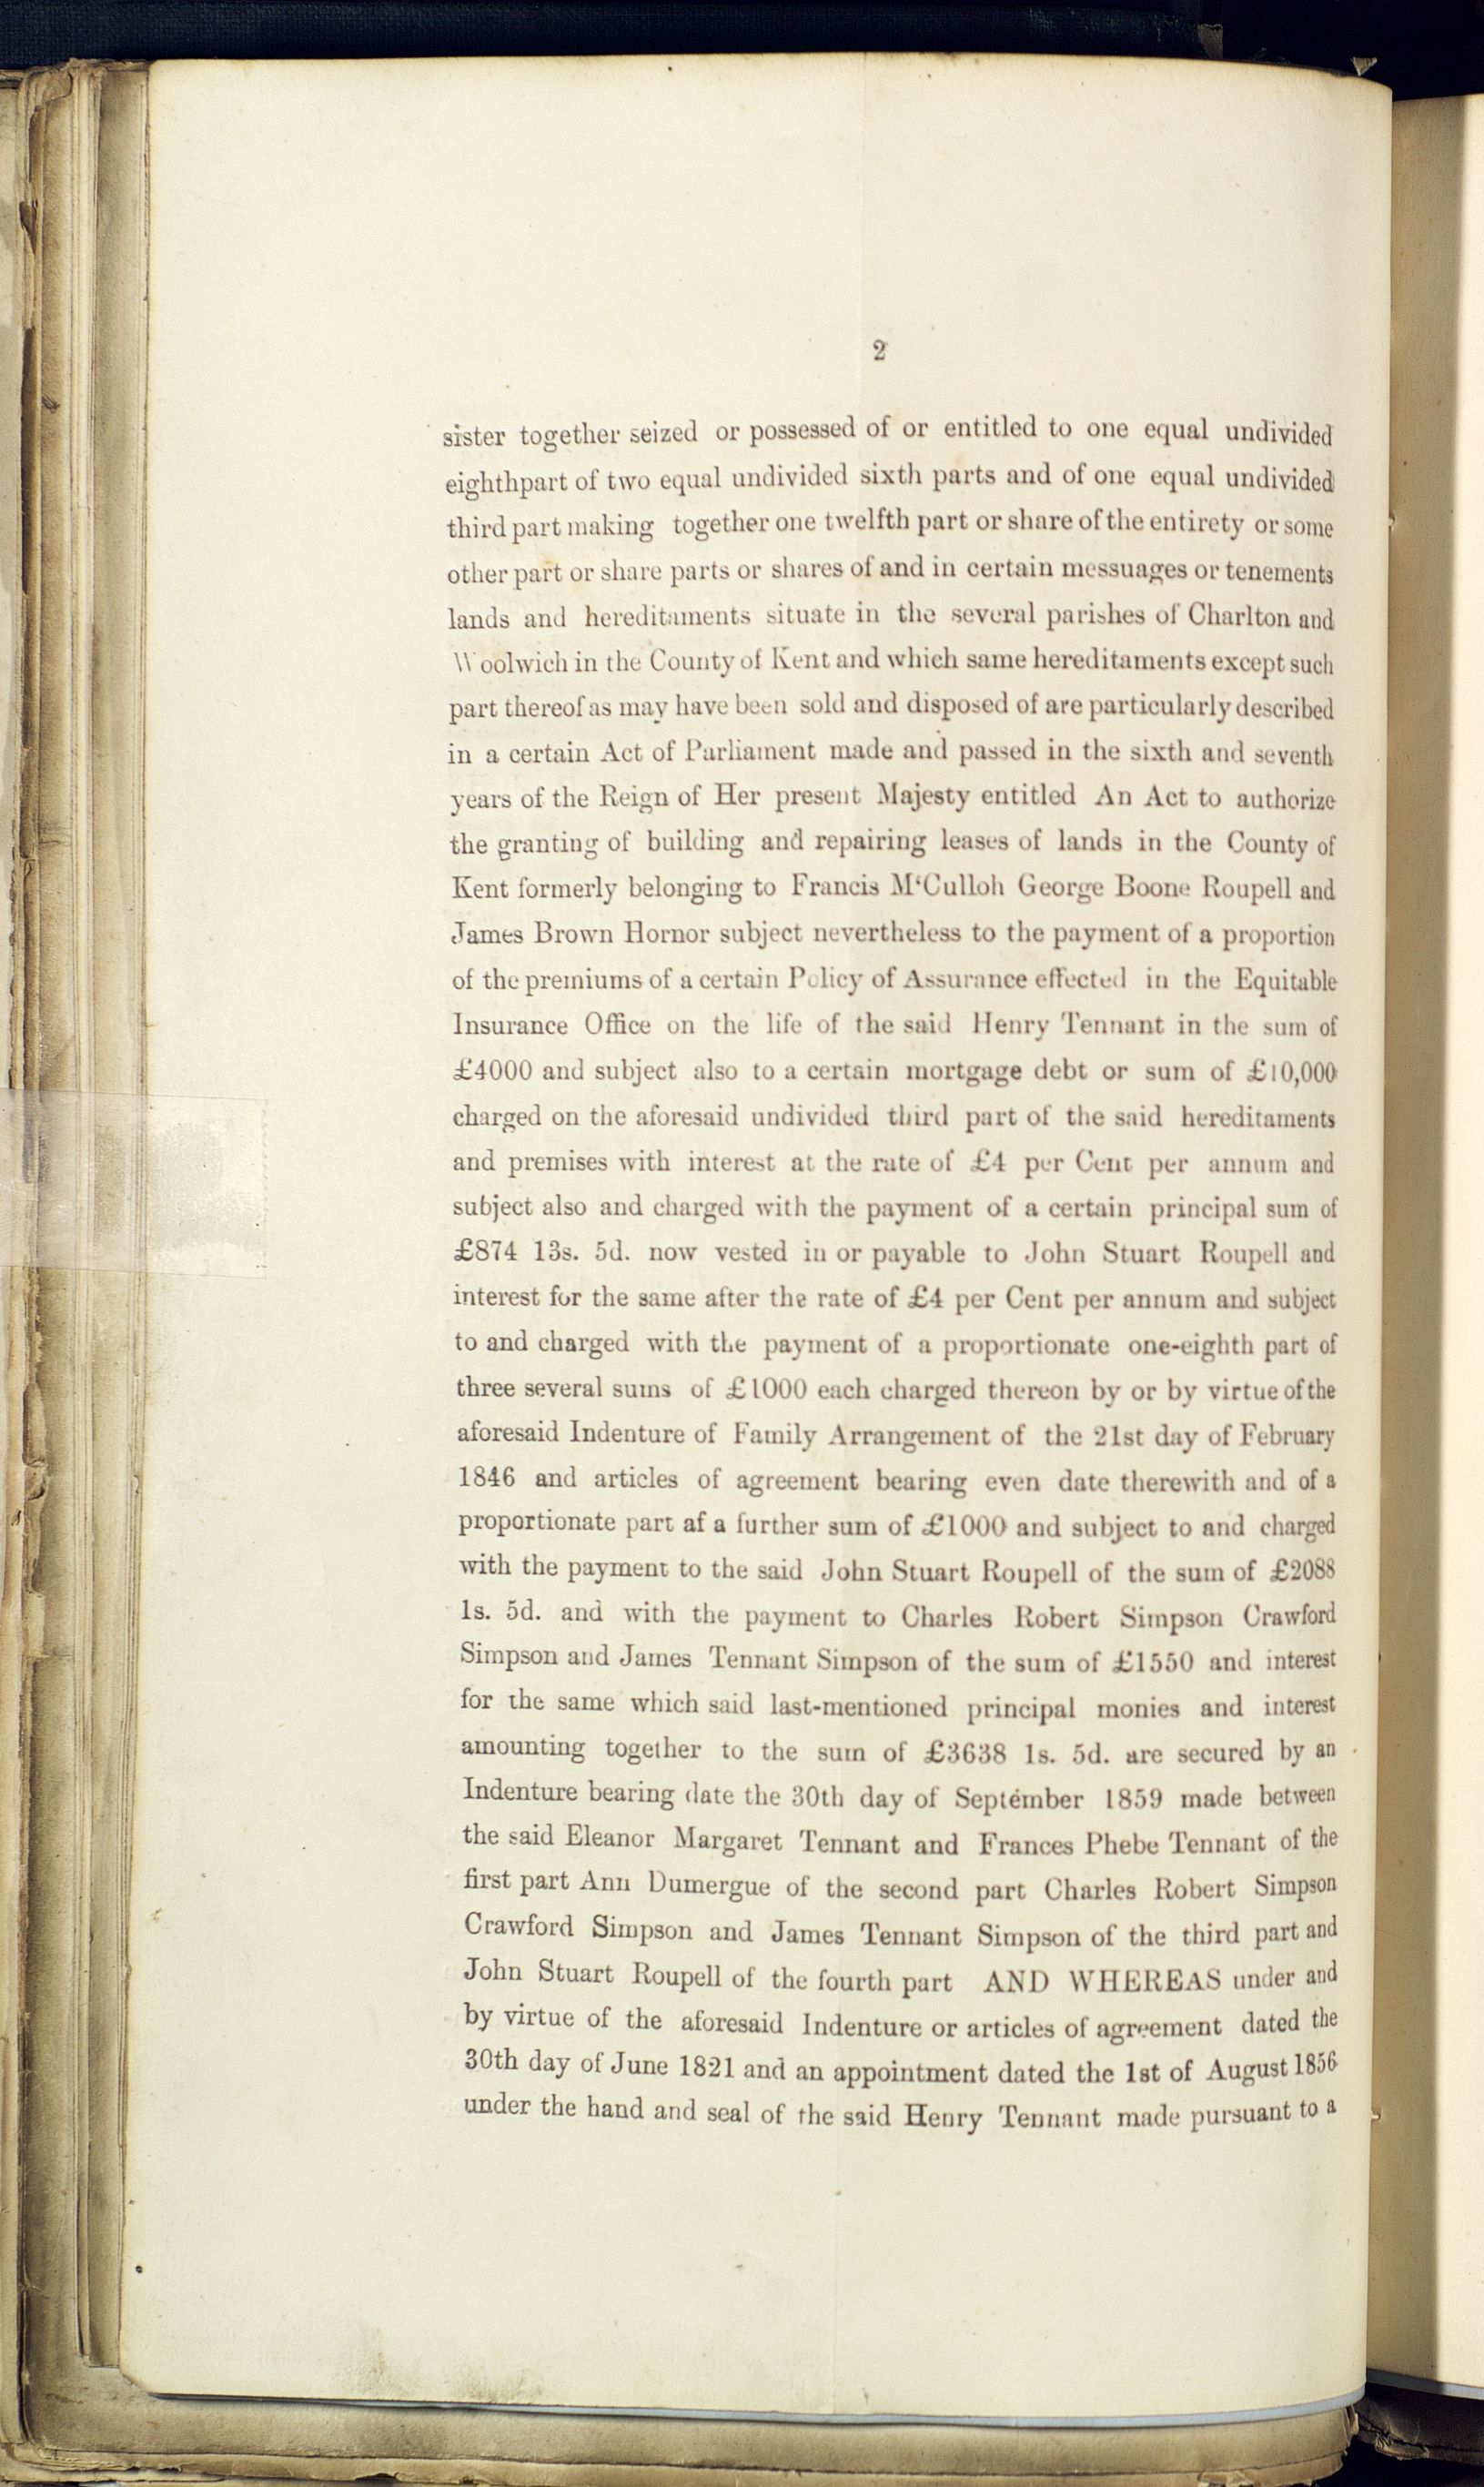 2
sister together seized or possessed of or entitled to one equal undivided
eighthpart of two equal undivided sixth parts and of one equal undivided
third part making together one twelfth part or share of the entirety or some
other part or share parts or shares of and in certain messuages or tenements
lands and hereditaments situate in the several parishes of Charlton and
Woolwich in the County of Kent and which same hereditaments except such
part thereof as may have been sold and disposed of are particularly described
in a certain Act of Parliament made and passed in the sixth and seventh
years of the Reign of Her present Majesty entitled An Act to authorize
the granting of building and repairing leases of lands in the County of
Kent formerly belonging to Francis M‘Culloh George Boone Roupell and
James Brown Hornor subject nevertheless to the payment of a proportion
of the premiums of a certain Policy of Assurance effected in the Equitable
Insurance Office on the life of the said Henry Tennant in the sum of
£4000 and subject also to a certain mortgage debt or sum of £10,000
charged on the aforesaid undivided third part of the said hereditaments
and premises with interest at the rate of £4 per Cent per annum and
subject also and charged with the payment of a certain principal sum of
£874 13s. 5d. now vested in or payable to John Stuart Roupell and
interest for the same after the rate of £4 per Cent per annum and subject
to and charged with the payment of a proportionate one-eighth part of
three several sums of £1000 each charged thereon by or by virtue of the
aforesaid Indenture of Family Arrangement of the 21st day of February
1846 and articles of agreement bearing even date therewith and of a
proportionate part af a further sum of £1000 and subject to and charged
with the payment to the said John Stuart Roupell of the sum of £2088
1s. 5d. and with the payment to Charles Robert Simpson Crawford
Simpson and James Tennant Simpson of the sum of £1550 and interest
for the same which said last-mentioned principal monies and interest
amounting together to the sum of £3638 1s. 5d. are secured by an
Indenture bearing date the 30th day of September 1859 made between
the said Eleanor Margaret Tennant and Frances Phebe Tennant of the
first part Ann Dumergue of the second part Charles Robert Simpson
Crawford Simpson and James Tennant Simpson of the third part and
John Stuart Roupell of the fourth part AND WHEREAS under and
by virtue of the aforesaid Indenture or articles of agreement dated the
30th day of June 1821 and an appointment dated the 1st of August 1856
under the hand and seal of the said Henry Tennant made pursuant to a